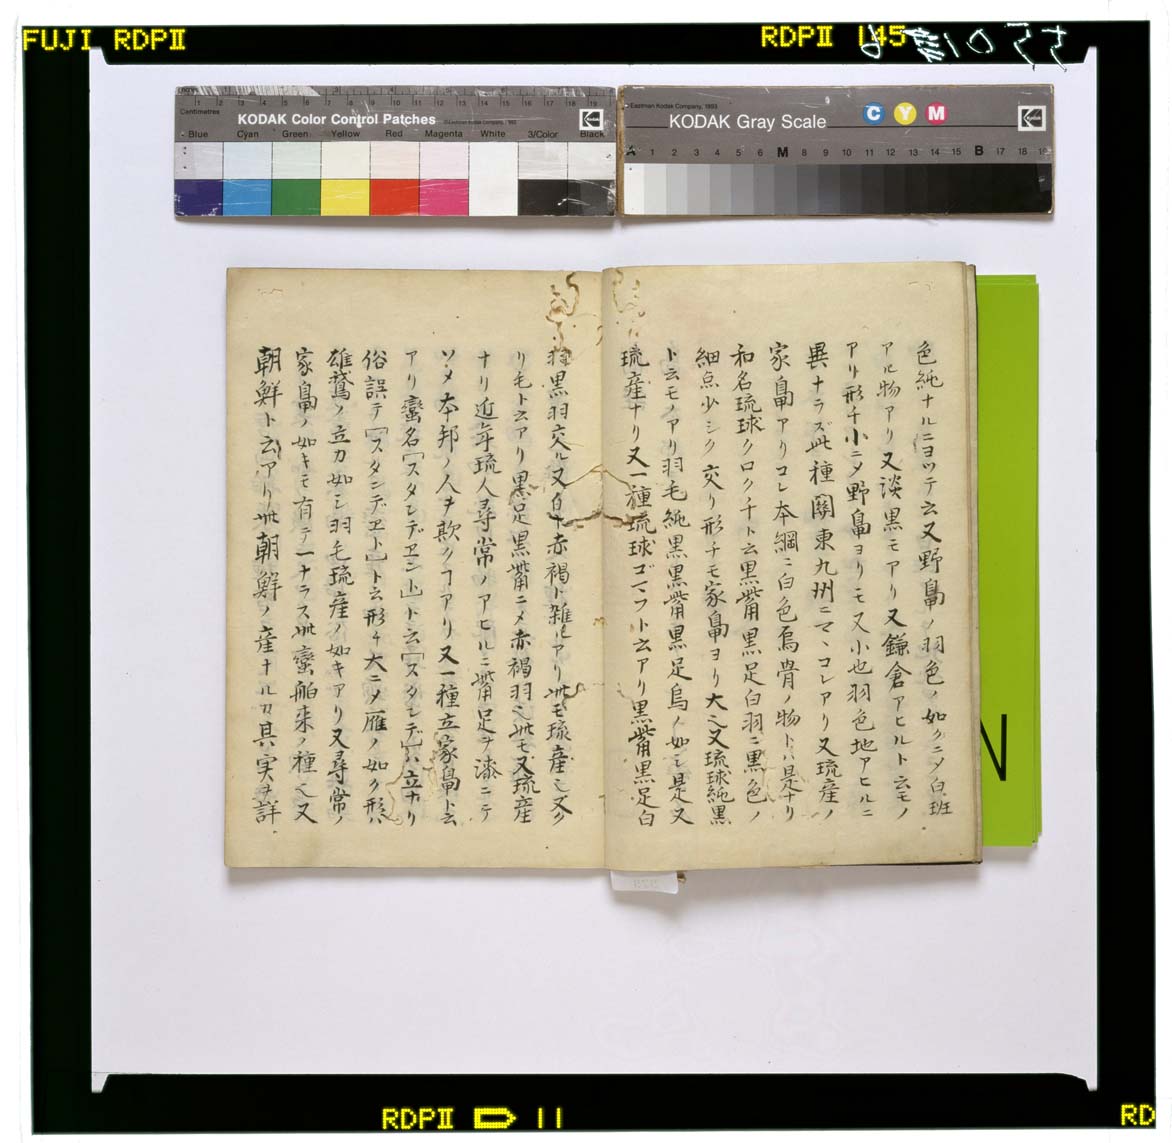 FUJI RDPⅡ
RDPⅡ
Centimetres
KODAK Color Control Patches
Blue Cyan Green Yellow Red Magenta White 3/Color Black
Kodak
Eastman Kodak Company, 1993
KODAK Gray Scale
C Y M
Kodak
A 1 2 3 4 5 6 M 8 9 10 11 12 13 14 15 B 17 18 19
色純ナルニヨツテ云又野鳧ノ羽色ノ如クニメ白斑
アル物アリ又淡黒モアリ又鎌倉アヒルト云モノ
アリ形チ小ニメ野鳧ヨリモ又小也羽色地アヒルニ
異ナラズ此種關東九州ニマヽコレアリ又琉産ノ
家鳧アリコレ本綱ニ白色烏骨ノ物トハ是ナリ
和名琉球クロクチト云黒觜黒足白羽ニ黒色ノ
細点少シク交リ形チモ家鳧ヨリ大也又琉球純黒
ト云モノアリ羽毛純黒黒觜黒足烏ノ如シ是又
琉産ナリ又一種琉球ゴマフト云アリ黒觜黒足白
羽黒羽交ル又白ト赤褐ト雑ルアリ此モ琉産也又ク
リ毛ト云アリ黒足黒觜ニメ赤褐羽也此モ又琉産
ナリ近年琉人尋常ノアヒルニ觜足ヲ漆ニテ
ソメ本邦ノ人ヲ欺クヿアリ又一種立家鳧ト云
アリ蠻名[スタンデヱント]ト云[スタンデ]ハ立ナリ
俗誤テ[スタンデヱト]ト云形チ大ニメ雁ノ如ク形ハ
雄鵞ノ立カ如シ羽毛琉産ノ如キアリ又尋常ノ
家鳧ノ如キモ有テ一ナラス此蠻舶来ノ種也又
朝鮮ト云アリ此朝鮮ノ産ナルカ其実ヲ詳
N
RDPⅡ 11
RD